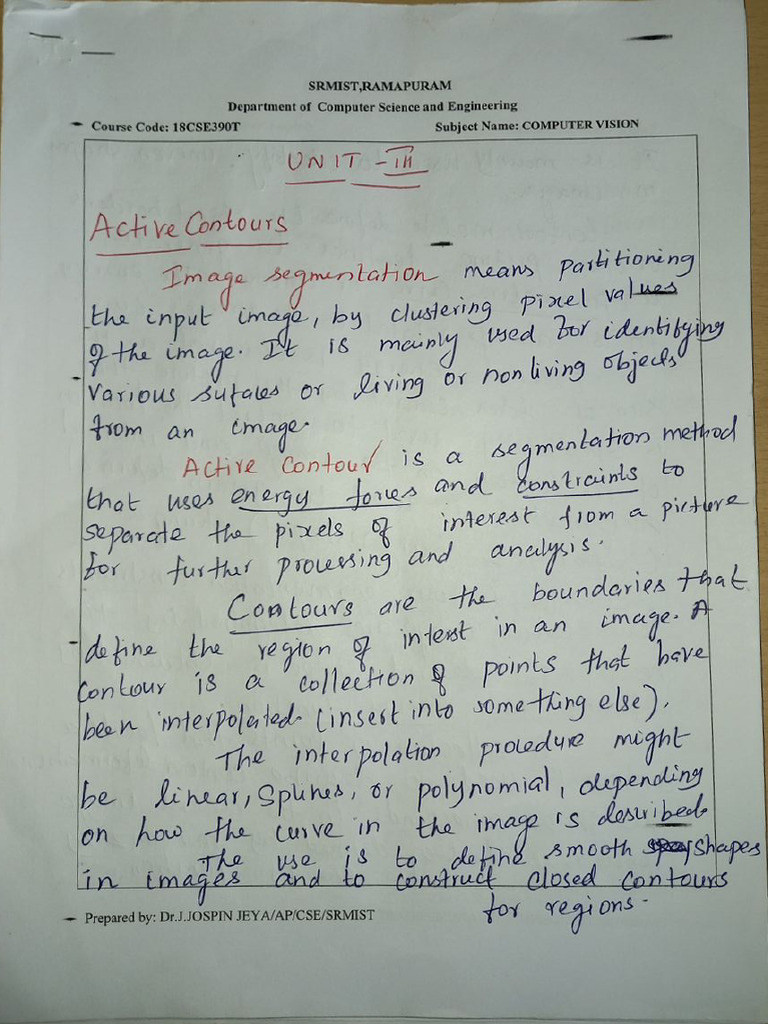 SRMIST,RAMAPURAM
Department of Computer Science and Engineering
Course Code: 18CSE390T Subject Name: COMPUTER VISION
UNIT - III
Active Contours
Image segmentation means partitioning
the input image, by clustering pixel values
of the image. It is mainly used for identifying
various sufales or living or nonliving objects
from an image.
Active Contour is a segmentation method
that uses energy forces and constraints to
separate the pixels of interest from a picture
for further processing and analysis.
Contours are the boundaries that
define the region of interst in an image. A
Contour is a collection of points that have
been interpolated (insert into something else).
The interpolation procedure might
be linear, Splines, or polynomial, depending
on how the curve in the image is described.
The use is to define smooth shapes
in images and to construct closed contours
for regions.
Prepared by: Dr.J.JOSPIN JEYA/AP/CSE/SRMIST